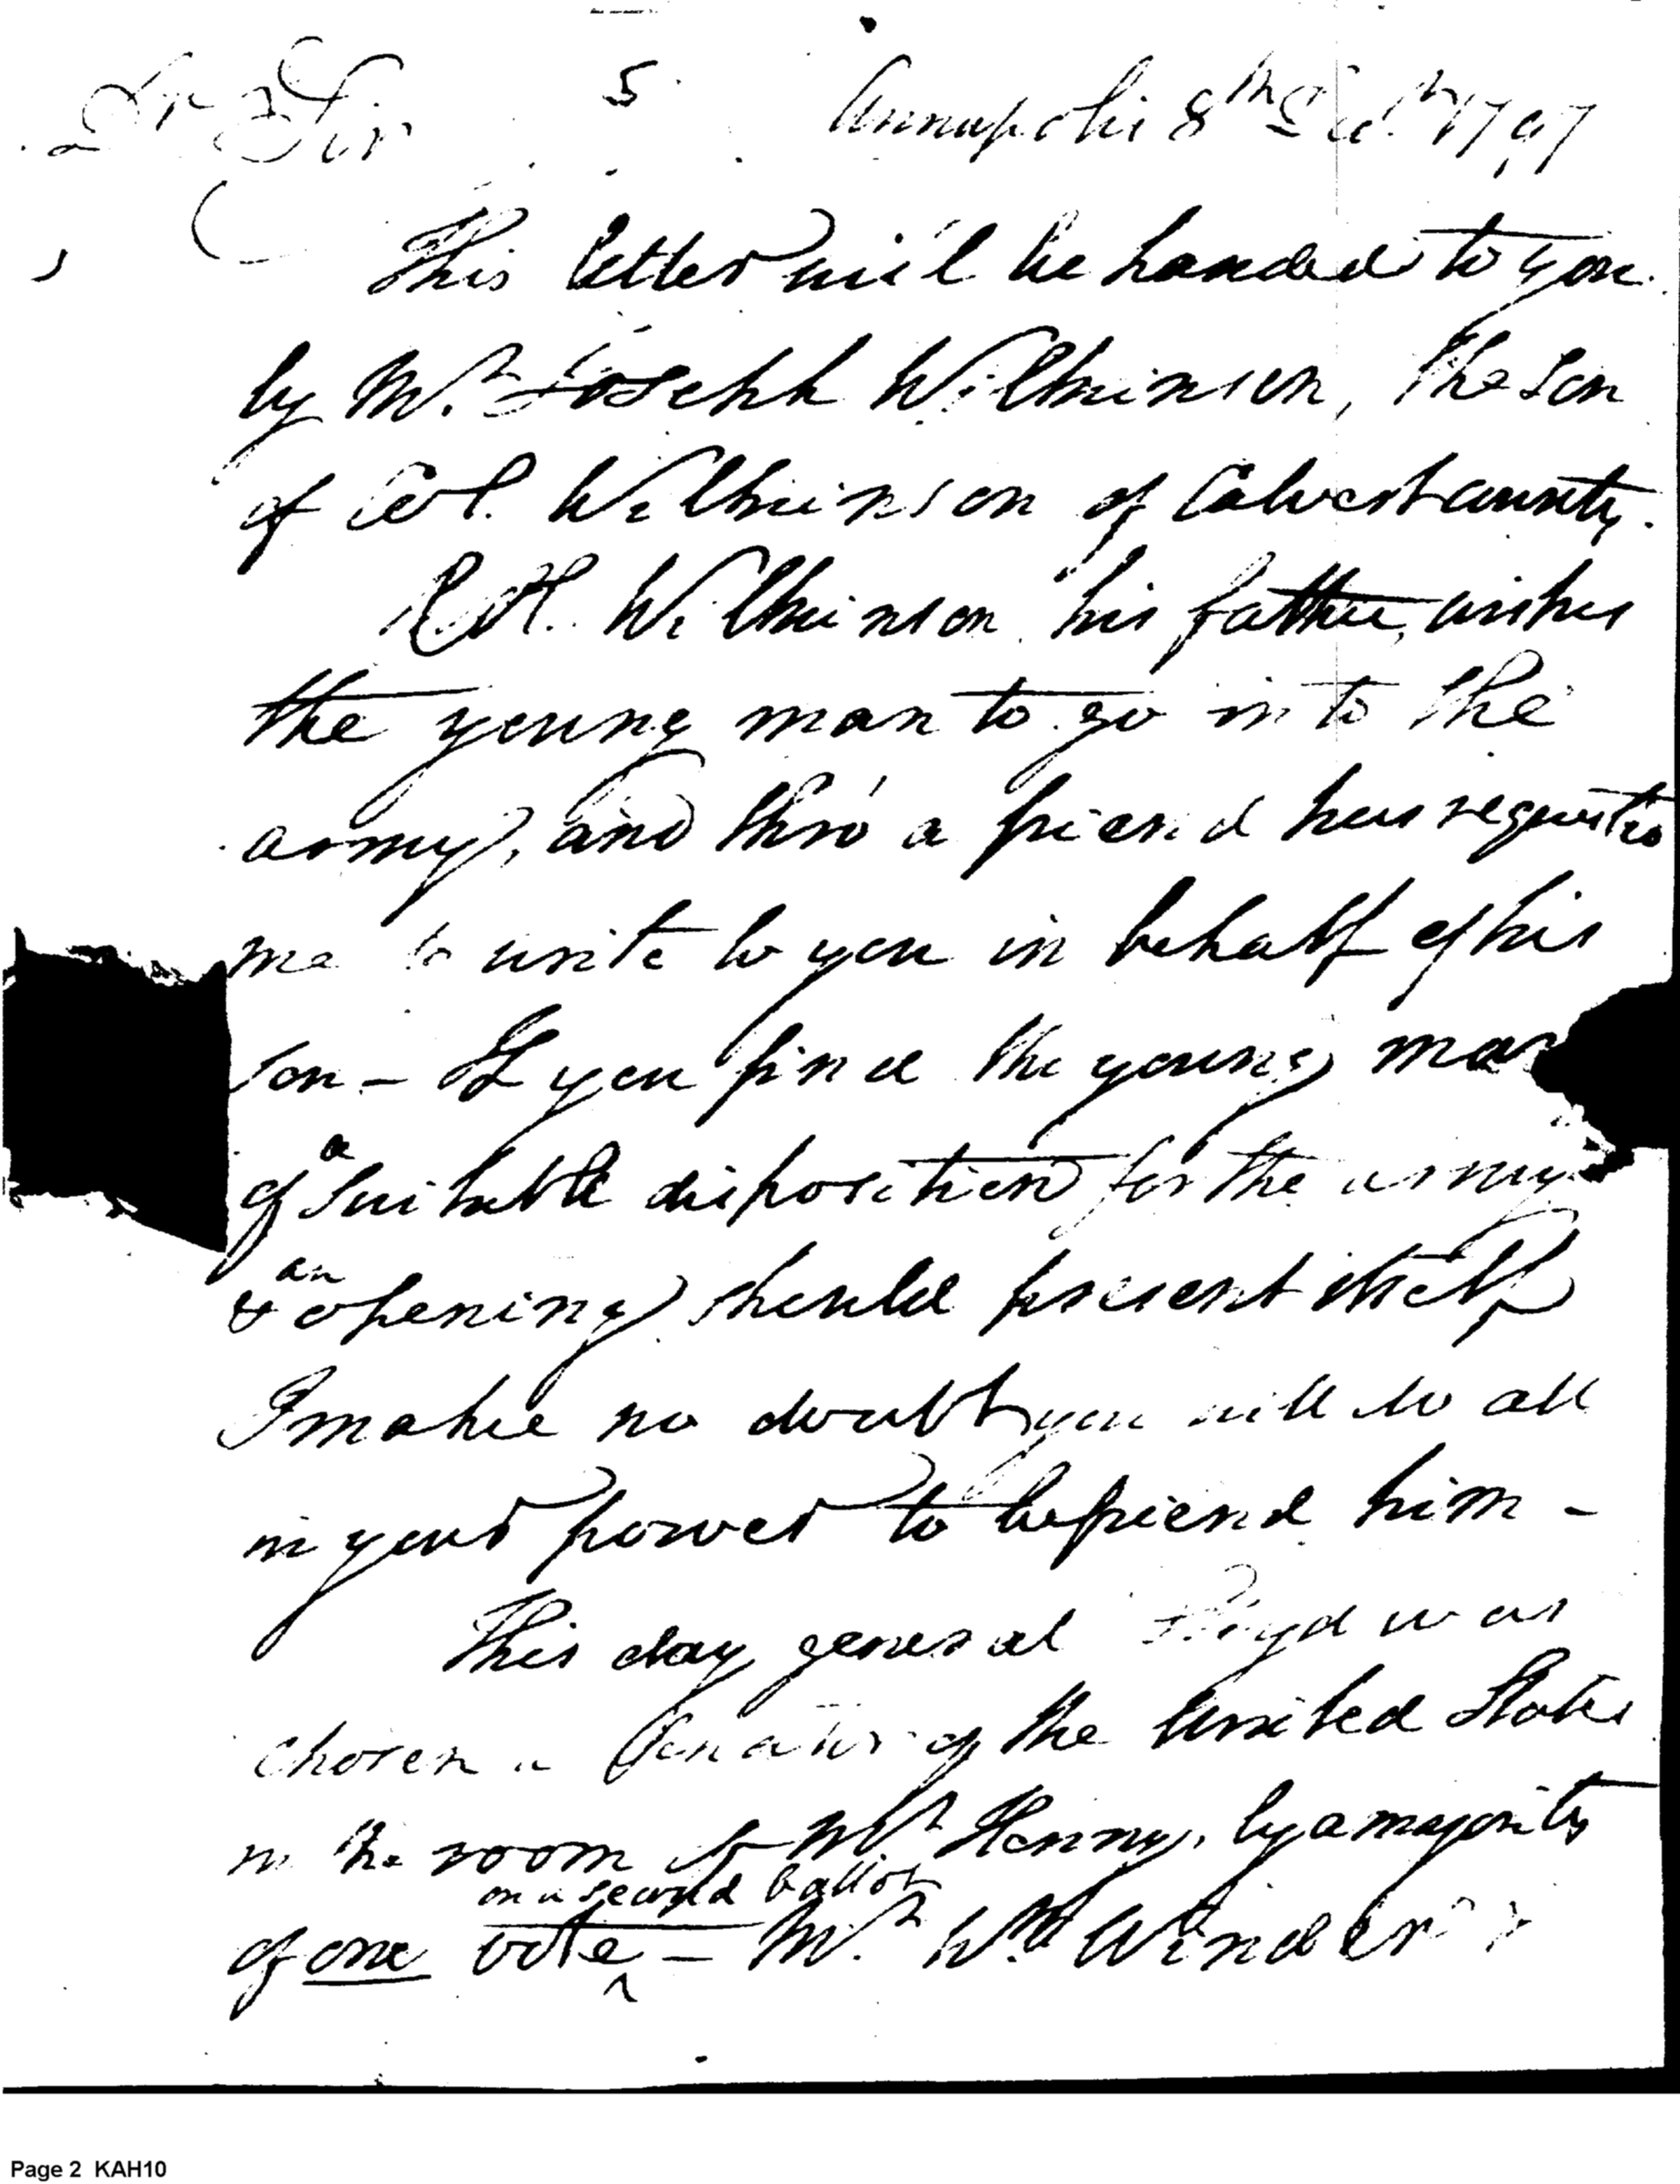 Dr Sir 5 Annapolis 8th Decr 1797
This letter will be handed to you
by Mr. Joseph Wilkinson, the son
of Col. Wilkinson of Calvert county.
Col. Wilkinson his father, wishes
the young man to go into the
army, and thro' a friend has requested
me to write to you in behalf of his
son - If you find the young man
of a suitable disposition for the army
& an opening should present itself
I make no doubt you will do all
in your power to befriend him -
This day general Lloyd was
chosen a Senator of the United States
in the room of Mr Henry, by a majority
on a second ballot
of one vote ^ - Mr. Wm Winder
Page 2 KAH10